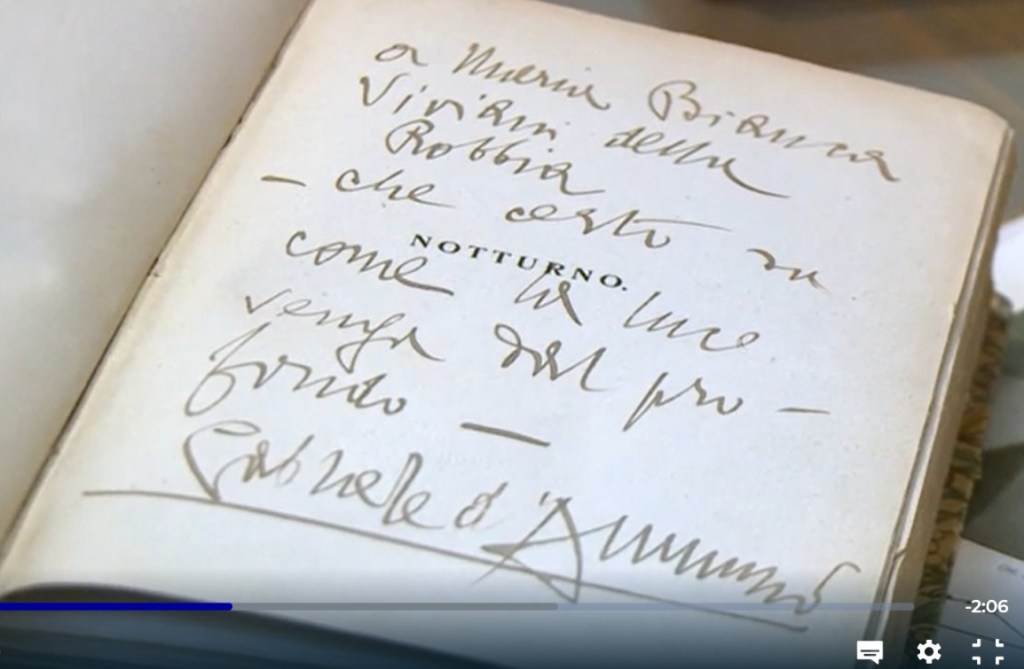 a Maria Bianca
Viviani della
Robbia
— che certo sa
NOTTURNO.
come la luce
venga dal pro—
fondo —
Gabriele d'Annunzio
-2:06